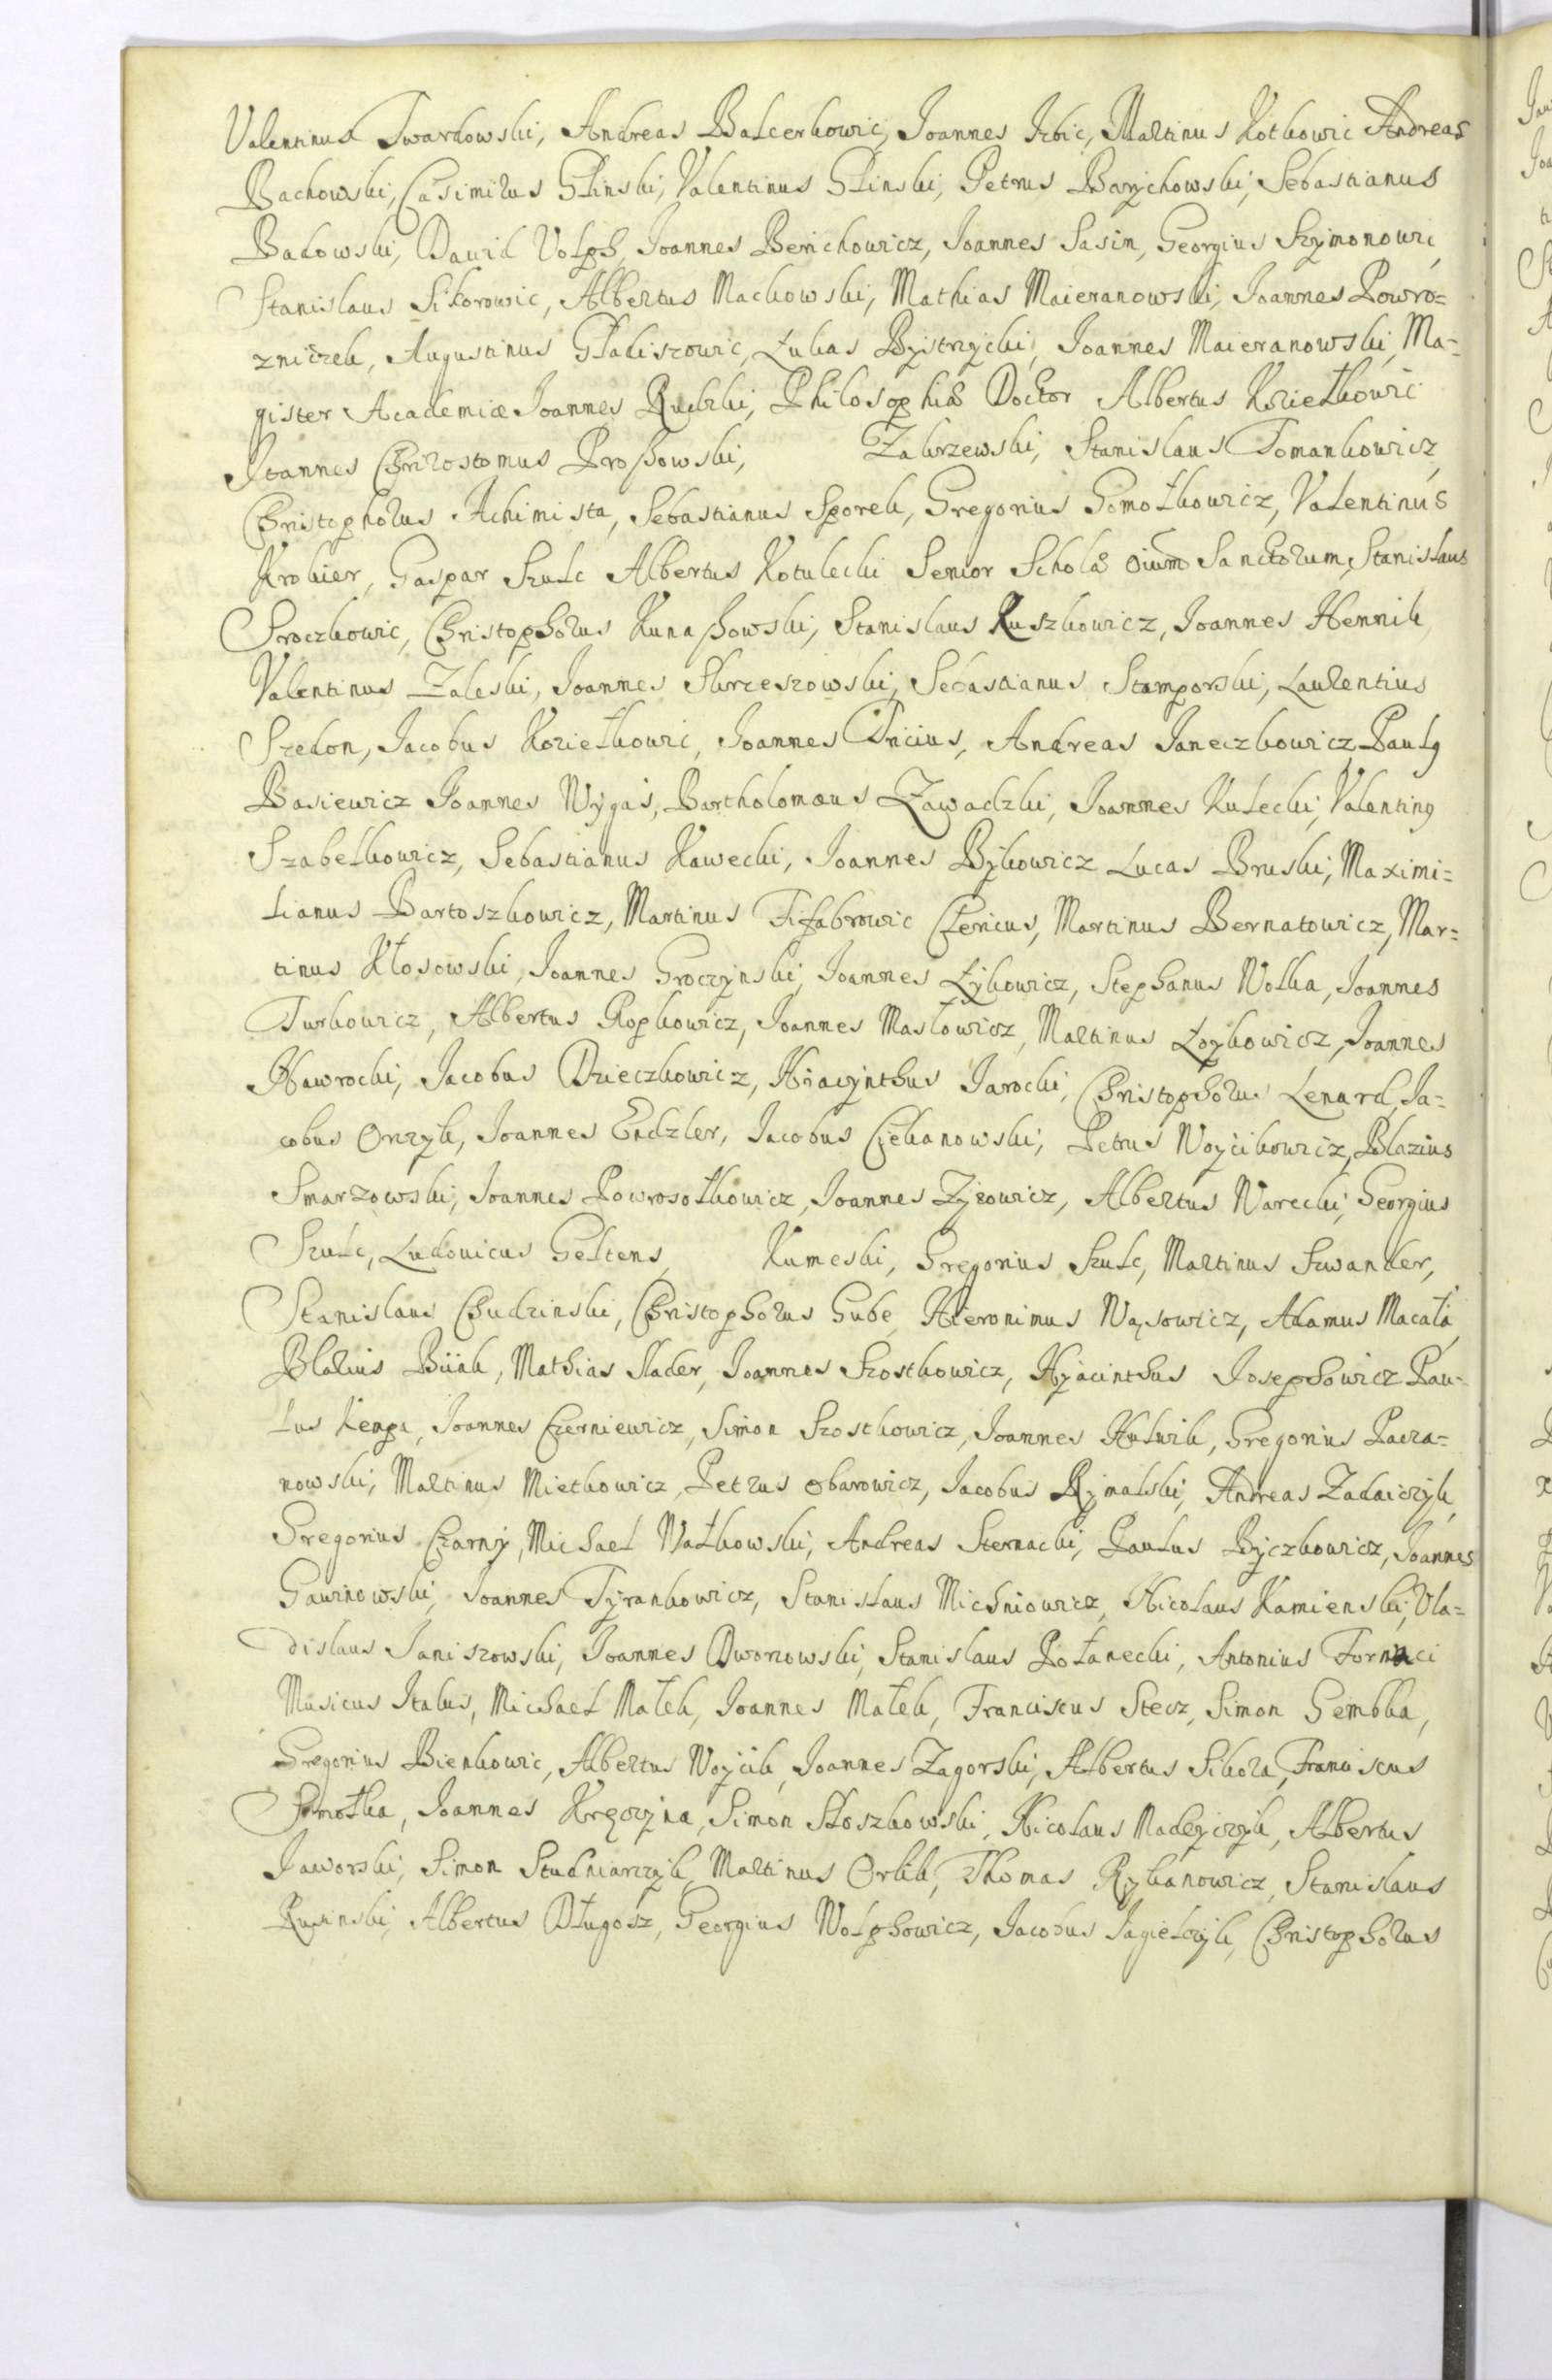 Valentinus Twardowski, Andreas Balcerkowic, Joannes Izbic, Martinus Kotkowic Andreas
Bachowski, Casimirus Glinski, Valentinus Glinski, Petrus Barychowski, Sebastianus
Badowski, David Volph, Joannes Berichowicz, Joannes Sasin, Georgius Szymonowic,
Stanislaus Sikorowic, Albertus Machowski, Mathias Maieranowski, Joannes Powro=
zniczek, Augustinus Gladiszowic, Łukas Bystrzycki, Joannes Maieranowski, Ma=
gister Academiæ Joannes Rudzki, Philosophiæ Doctor Albertus Koziełkowic
Joannes Chrizostomus Proßowski, Zakrzewski, Stanislaus Tomankowicz,
Christophorus Achimista, Sebastianus Sporek, Gregorius Gomołkowicz, Valentinus
Krokier, Gaspar Szulc Albertus Kotulecki Senior Scholæ oium Sanctorum, Stanislaus
Sroczkowic, Christophorus Kunaßowski, Stanislaus Ruszkowicz, Joannes Hennik
Valentinus Zaleski, Joannes Skrzeszowski, Sebastianus Stamporski, Laurentius
Szedon, Jacobus Koziełkowic, Joannes Dricius, Andreas Janeczkowicz Paulg
Basiewicz Joannes Wygaś, Bartholomæus Zawadzki, Joannes Kulecki, Valenting
Szabelkowicz, Sebastianus Kawecki, Joannes Bykowicz Lucas Bruski, Maximi=
lianus Bartoszkowicz, Martinus Fifabrowic Clericus, Martinus Bernatowicz, Mar=
tinus Kłosowski, Joannes Groczynski, Joannes Łykowicz, Stephanus Wolka, Joannes
Turkowicz, Albertus Ropkowicz, Joannes Masłowicz, Martinus Łoykowicz, Joannes
Nawrocki, Jacobus Dzieczkowicz, Hiacynthus Jarocki, Christophorus Lenard, Ja=
cobus Orczyk, Joannes Endzler, Jacobus Czekanowski, Petrus Woycikowicz, Blazius
Smarzowski, Joannes Powrosołkowicz, Joannes Zyzowicz, Albertus Warecki, Georgius
Szulc, Ludovicus Geltens, Kumeski, Gregorius Szulc, Martinus Szwander,
Stanislaus Chudzinski, Christophorus Gube, Hieronimus Wąsowicz, Adamus Macała,
Blasius Biiak, Mathias Slader, Joannes Szostkowicz, Hyacinthus Josephowicz Pau=
lus Kempe, Joannes Czerniewicz, Simon Szostkowicz, Joannes Hulwik, Gregorius Pacza=
nowski, Martinus Mietkowicz, Petrus Obarowicz, Jacobus Rymalski, Andreas Zadaiczyk,
Gregorius Czarny, Michael Wałkowski, Andreas Sternacki, Paulus Byczkowicz, Joannes
Gawinowski, Joannes Tyrankowicz, Stanislaus Michniowicz, Nicolaus Kamienski, Vla=
dislaus Janiszowski, Joannes Dworzowski, Stanislaus Połanecki, Antonius Fornaci
Musicus Italus, Michael Małek, Joannes Małek, Franciscus Stecz, Simon Gembka,
Gregorius Bienkowic, Albertus Woycik, Joannes Zagorski, Albertus Sikora, Franciscus
Smołka, Joannes Kręczyna, Simon Słoszkowski, Nicolaus Madeyczyk, Albertus
Jaworski, Simon Studniarczyk, Martinus Orlik, Thomas Rybanowicz, Stanislaus
Rusinski, Albertus Długosz, Georgius Wolphowicz, Jacobus Jagielczyk, Christophorus